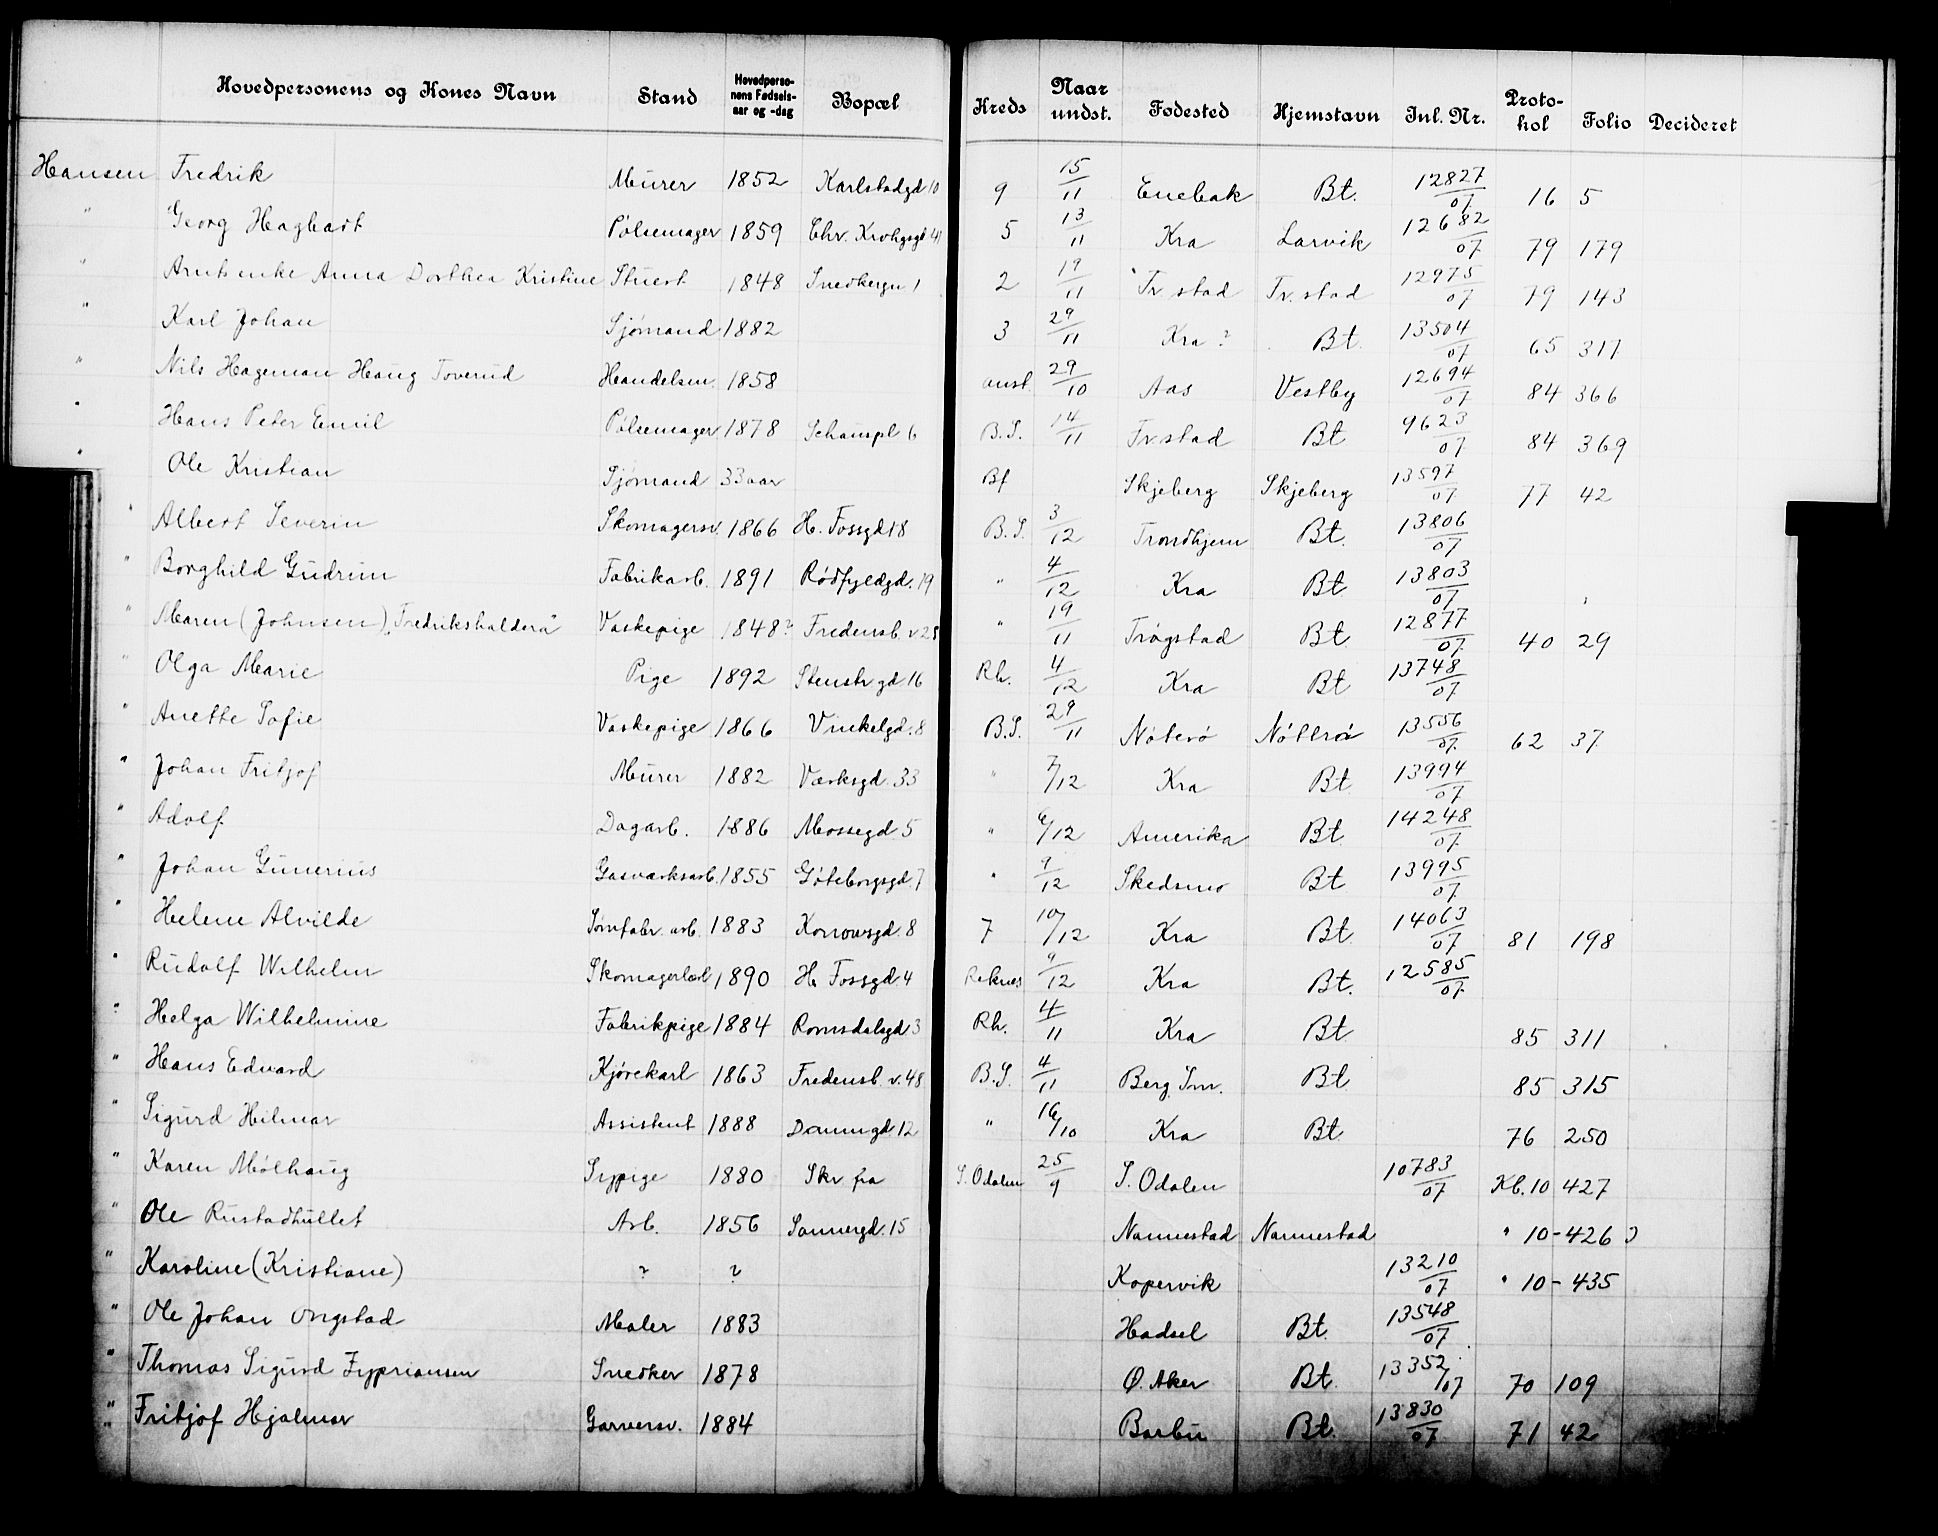 Hovedpersonens og Kones Navn Stand Hovedperso-nens Fødsels-aar og -dag Bopæl Kreds Naar undst. Fødested Hjemstavn Inl. Nr. Proto-kol Folio Decideret
Hansen Fredrik Murer 1852 Karlstadgd 10 9 15/11 Enebak Bt. 12827/07 16 5
" Georg Hagbart Pølsemager 1859 Chr. Krohgsgt 41 5 13/11 Kra Larvik 12682/07 79 179
" Arntsenke Anna Dorthea Kristine Stuert 1848 Snedkergn 1 2 19/11 Fr.stad Fr.stad 12975/07 79 143
" Karl Johan Sjømand 1882 3 29/11 Kra ? Bt. 13504/07 65 317
" Nils Hageman Haug Toverud Handelsm. 1858 anst. 29/10 Aas Vestby 12694/07 84 366
" Hans Peter Emil Pølsemager 1878 Schouspl 6 B.S. 14/11 Fr.stad Bt 9623/07 84 369
" Ole Kristian Sjømand 33 aar Bf Skjeberg Skjeberg 13597/07 77 42
" Albert Severin Skomagersv. 1866 H. Fossgd 18 B.S. 3/12 Trondhjem Bt. 13806/07
" Borghild Gudrun Fabrikarb. 1891 Rødfyldgd. 19 " 4/12 Kra Bt 13803/07
" Maren (Johnsen) "Fredrikshaldera" Vaskepige 1848? Fredensb. v 28 " 19/11 Trøgstad Bt. 12877/07 40 29
" Olga Marie Pige 1892 Stenstr gd 16 Rh. 4/12 Kra Bt 13748/07
" Anette Sofie Vaskepige 1866 Vinkelgd. 8 B.S. 29/11 Nøterø Nøterø 13556/07 62 37
" Johan Fritjof Murer 1882 Værksgd. 33 " 7/12 Kra Bt 13994/07
" Adolf Dagarb. 1886 Mossegd 5 " 6/12 Amerika Bt. 14248/07
" Johan Gunerius Gasværksarb. 1855 Gøteborgsgd. 7 " 9/12 Skedsmo Bt 13995/07
" Helene Alvilde Sømfabr. arb. 1883 Korrowsgd. 8 7 10/12 Kra Bt. 14063/07 81 198
" Rudolf Wilhelm Skomagerlærl 1890 H. Fossgd. 4 Reknes 9/12 Kra Bt. 12585/07
" Helga Wilhelmine Fabrikpige 1884 Romsdalsgd 3 Rh. 4/11 Kra Bt. 85 311
" Hans Edvard Kjørekarl 1863 Fredensb. v. 48 B.S. 4/11 Berg. Sm. Bt. 85 315
" Sigurd Hilmar Assistent 1888 Dannegd. 12 " 16/10 Kra Bt. 76 250
" Karen Mølhaug Sypige 1880 Skr fra S. Odalen 25/9 S. Odalen 10783/07 Kb. 10 427
" Ole Rustadhullet Arb. 1856 Sannergd. 15 Nannestad Nannestad " 10-426
" Karoline (Kristiane) ? ? Kopervik 13210/07 " 10-435
" Ole Johan Ongstad Maler 1883 Hadsel Bt. 13548/07
" Thomas Sigurd Zypriansen Snedker 1878 Ø. Aker Bt. 13352/07 70 109
" Fritjof Hjalmar Garversv. 1884 Barbu Bt. 13830/07 71 42
"